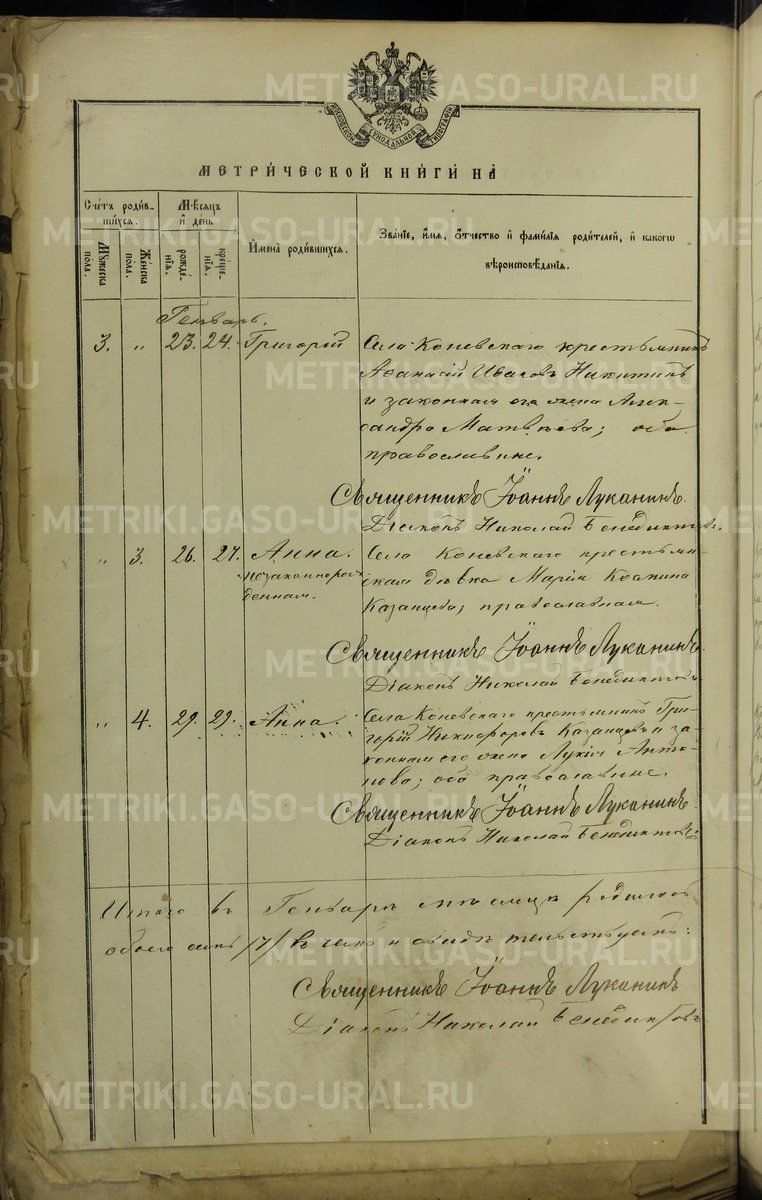 МОСКОВСКОЙ СУНОДАЛЬНОЙ ТИПОГРАФІИ
МЕТРИ́ЧЕСКОЙ КНИ́ГИ НА̀
Сче́тъ роди́в-
шихся.
Мѣ́сяцъ
и҆ де́нь
И҆мена̀ роди́вшихся.
Зва́нїе, и҆́мя, ѻ҆́тчество и҆ фами́лїя роди́телей, и҆ како́гѡ
вѣроисповѣ́данїя.
Мꙋ́жеска
по́ла.
Же́нска
по́ла.
рожде́-
нїя.
креще́-
нїя.
Генварь.
3. „ 23. 24. Григорій Села Коневскаго крестьянинъ
Аѳанасій Ивановъ Никитинъ
и законная его жена Алек-
сандра Матвѣева; оба
православные.
Священникъ Іоаннъ Луканинъ.
Діаконъ Николай Бенедиктовъ.
„ 3. 26. 27. Анна. Села Коневскаго крестьян-
незаконнорож-
денная.
ская дѣвка Марія Козмина
Казанцева; православная.
Священникъ Іоаннъ Луканинъ.
Діаконъ Николай Бенедиктовъ
„ 4. 29. 29. Анна. Села Коневскаго крестьянинъ Гри-
горій Никифоровъ Казанцевъ и за-
конная его жена Лукія Анто-
нова; оба православные.
Священникъ Іоаннъ Луканинъ
Діаконъ Николай Бенедиктовъ
Итого въ Генварѣ мѣсяцѣ родилось
обоего семь /7/ въ чемъ и свидѣтельствуемъ:
Священникъ Іоаннъ Луканинъ
Діаконъ Николай Бенедиктовъ
METRIKI.GASO-URAL.RU